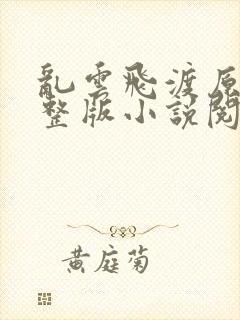 亂雲飛渡原
整版小說閱
黃庭菊